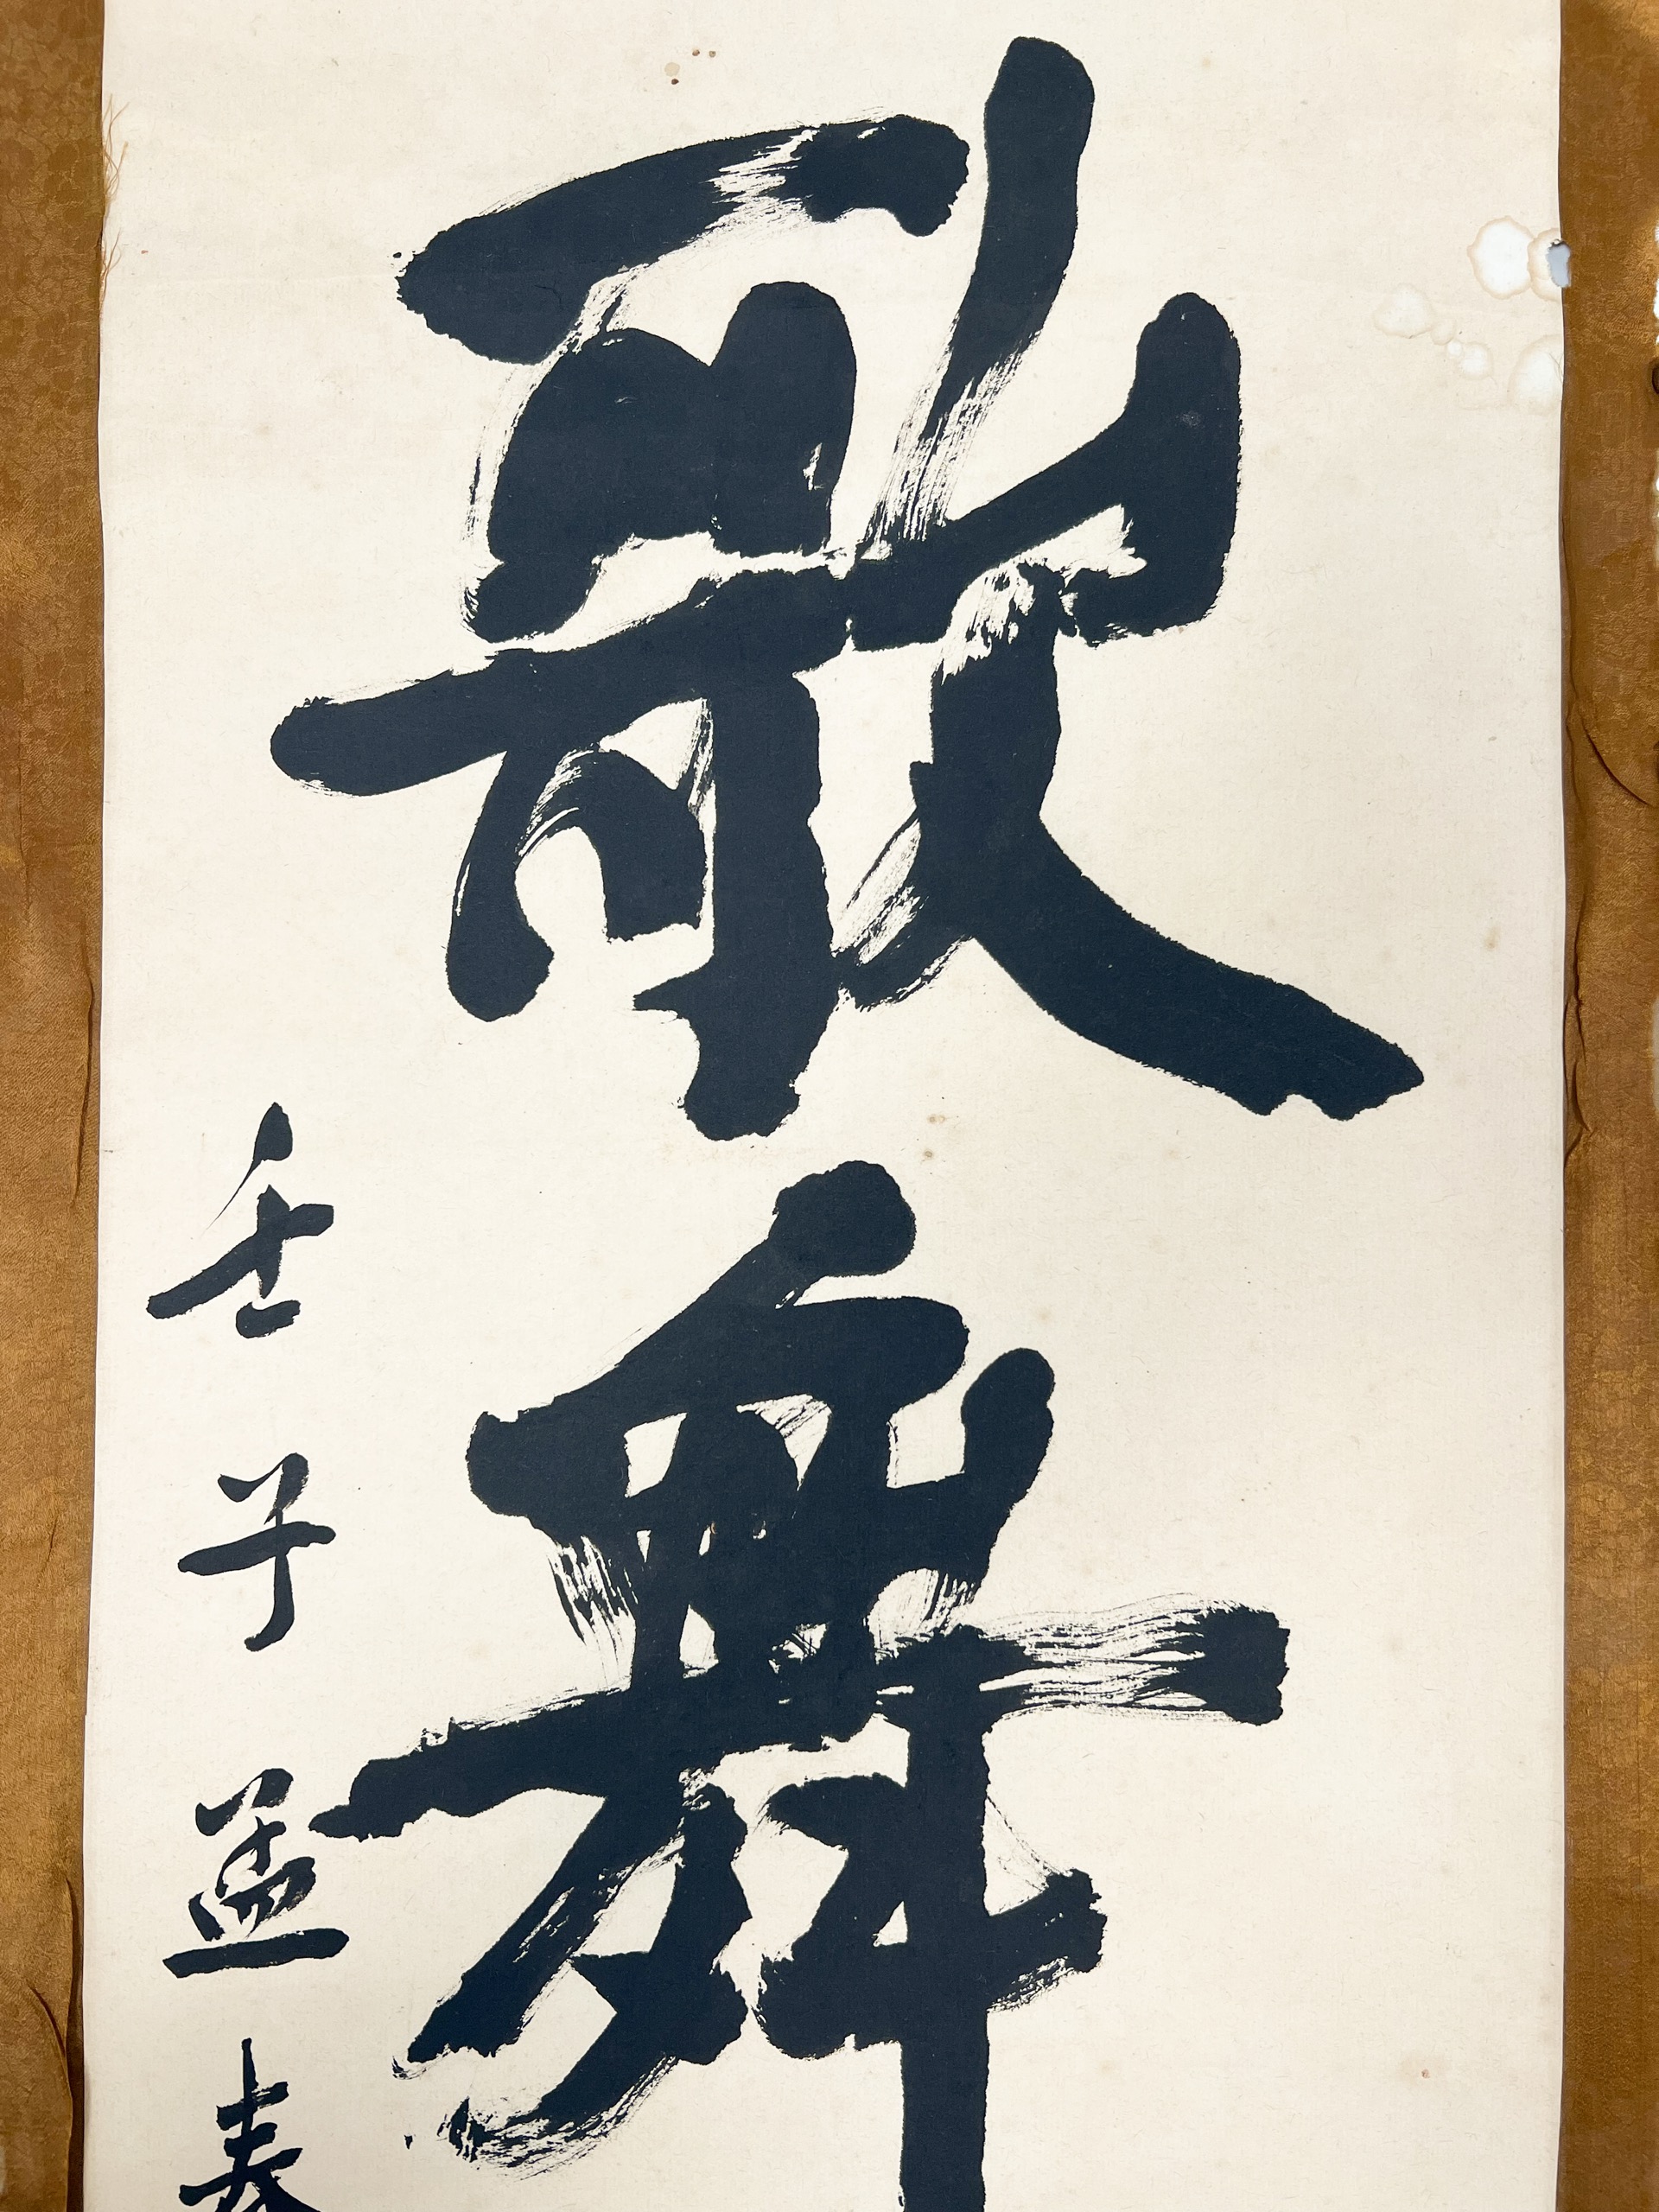 歌舞
壬子孟春